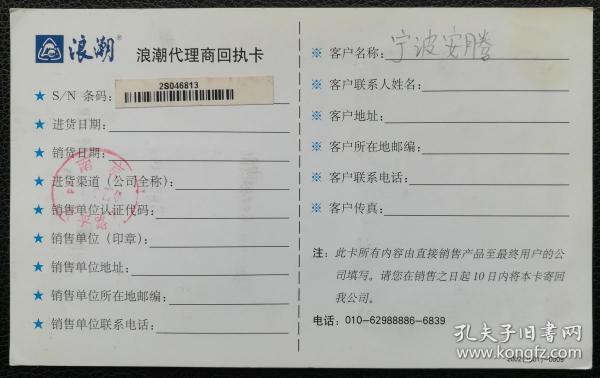 浪潮®
浪潮代理商回执卡
★ S/N 条码:
2S046813
★ 进货日期:
★ 销货日期:
★ 进货渠道（公司全称）:
★ 销售单位认证代码:
★ 销售单位（印章）:
★ 销售单位地址:
★ 销售单位所在地邮编:
★ 销售单位联系电话:
※ 客户名称: 宁波安腾
※ 客户联系人姓名:
※ 客户地址:
※ 客户所在地邮编:
※ 客户联系电话:
※ 客户传真:
注: 此卡所有内容由直接销售产品至最终用户的公
司填写。请您在销售之日起10日内将本卡寄回
我公司。
电话: 010-62988886-6839
孔夫子旧书网
www.kongfz.com